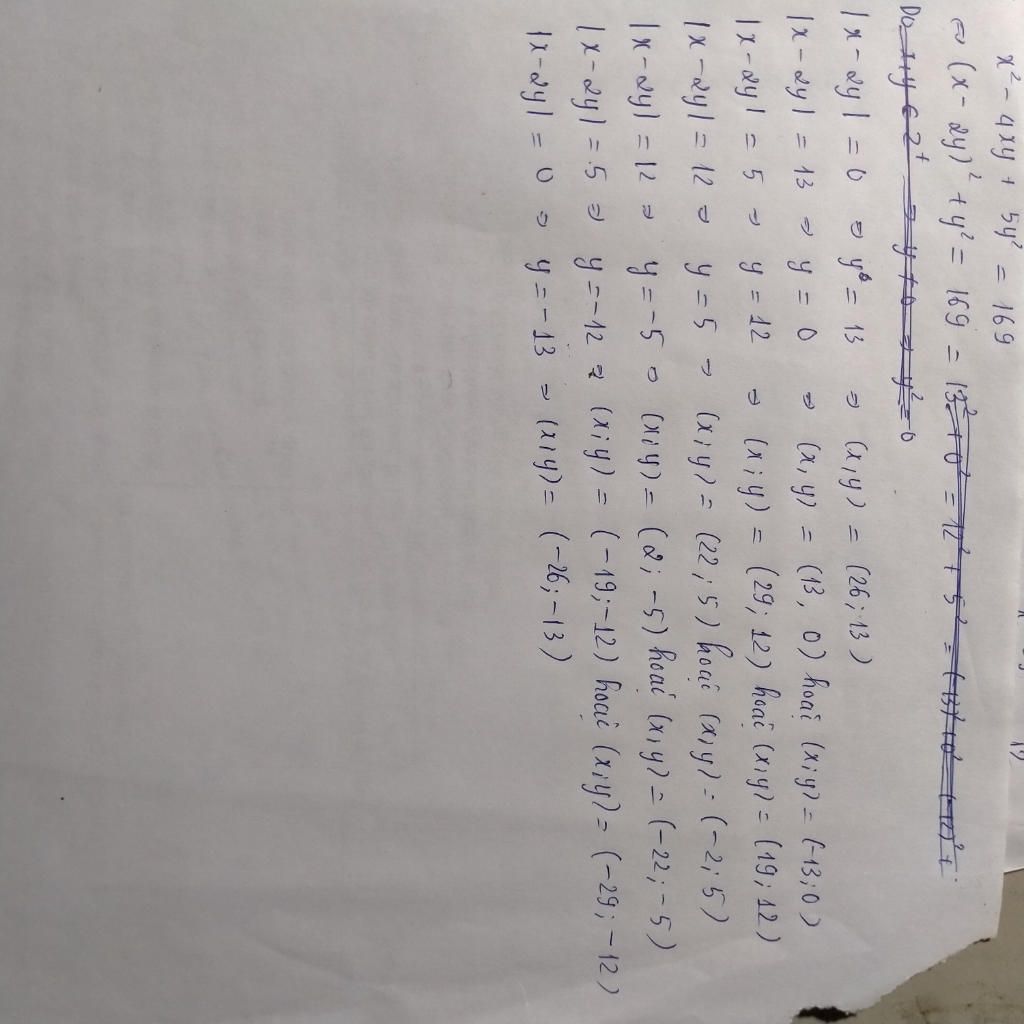 x² - 4xy + 5y² = 169
⇔ (x - 2y)² + y² = 169 = 13² + 0² = 12² + 5² = (-13)² + 0² = (-12)² +
Do x, y ∈ Z⁺ ⇒ y ≠ 0 ⇒ y² = 0
|x - 2y| = 0 ⇒ y = 13 ⇒ (x, y) = (26; 13)
|x - 2y| = 13 ⇒ y = 0 ⇒ (x, y) = (13, 0) hoặc (x; y) = (-13; 0)
|x - 2y| = 5 ⇒ y = 12 ⇒ (x; y) = (29; 12) hoặc (x, y) = (19; 12)
|x - 2y| = 12 ⇒ y = 5 ⇒ (x, y) = (22; 5) hoặc (x, y) = (-2; 5)
|x - 2y| = 12 ⇒ y = -5 ⇒ (x, y) = (2; -5) hoặc (x, y) = (-22; -5)
|x - 2y| = 5 ⇒ y = -12 ⇒ (x; y) = (-19; -12) hoặc (x; y) = (-29; -12)
|x - 2y| = 0 ⇒ y = -13 ⇒ (x, y) = (-26; -13)